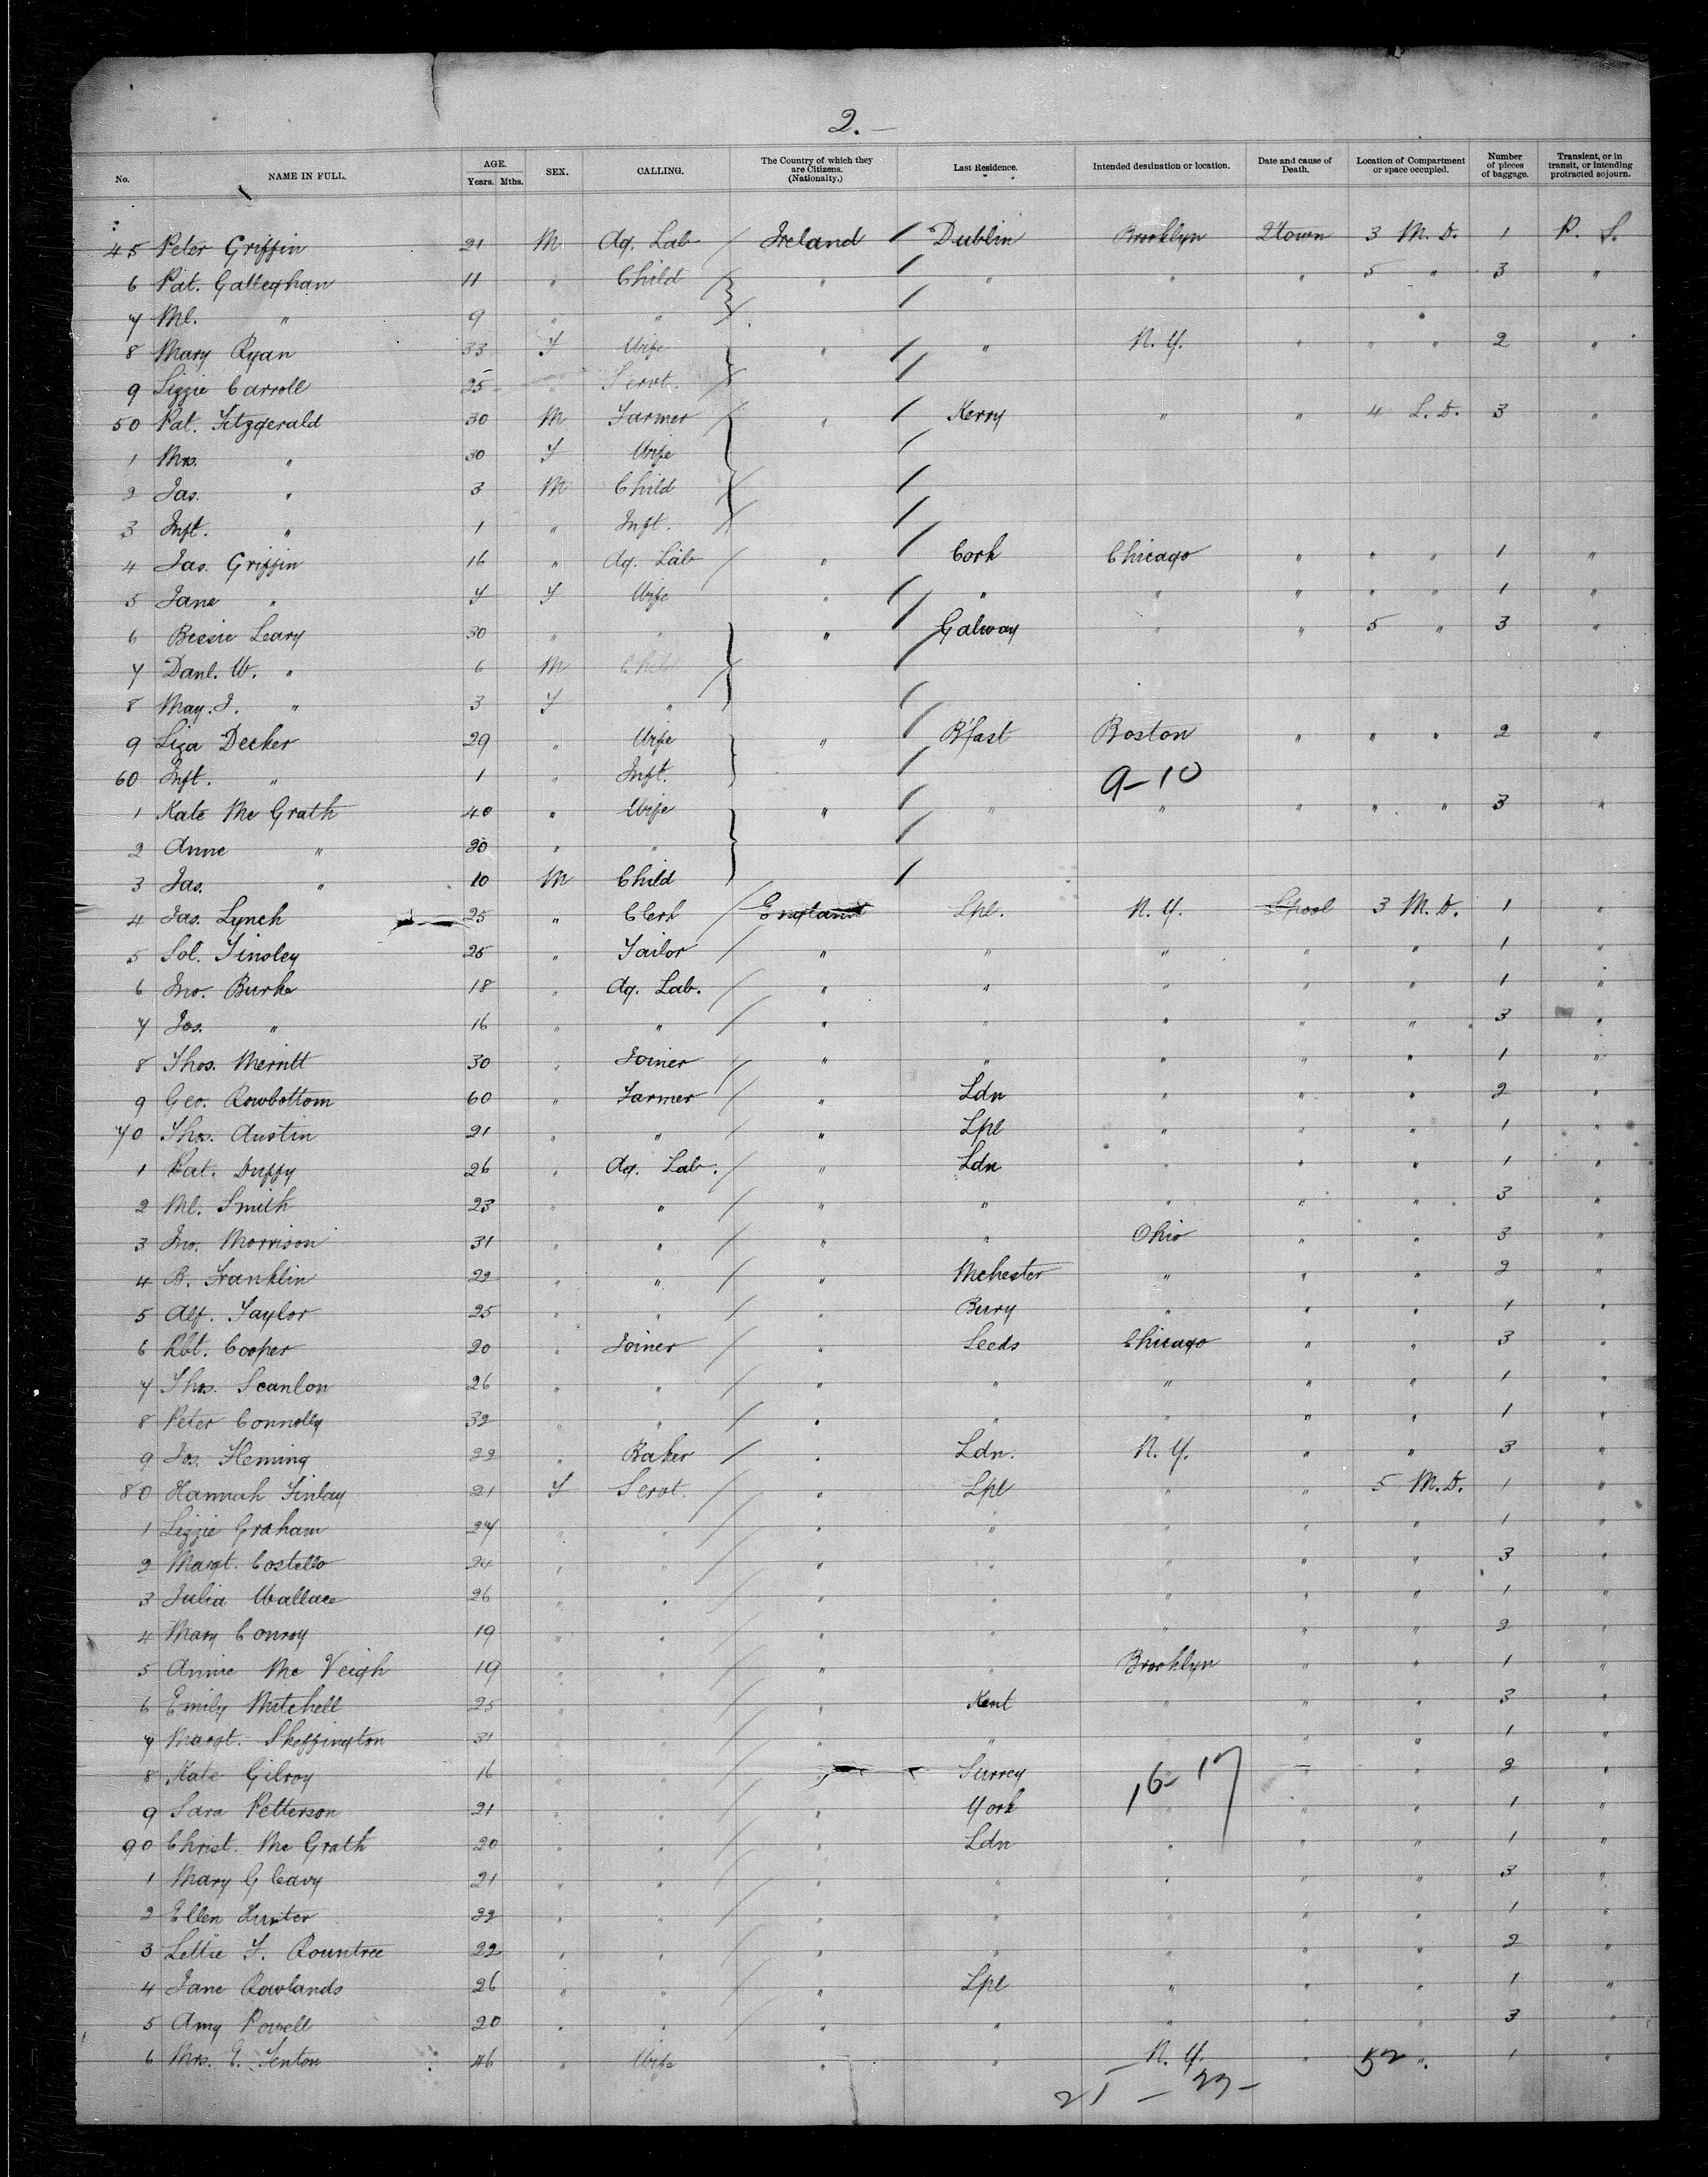 2. —
No. NAME IN FULL. AGE. Years. Mths. SEX. CALLING. The Country of which they are Citizens. (Nationalty.) Last Residence. Intended desination or location. Date and cause of Death. Location of Compartment or space occupied. Number of pieces of baggage. Transient, or in transit, or intending protracted sojourn.
45 Peter Griffin 21 M Ag. Lab Ireland Dublin Brooklyn Qtown 3 M. D. 1 P. S.
6 Pat. Galleghan 11 " Child " " " " 5 " 3 "
7 Ml. " 9 " "
8 Mary Ryan 33 F Wife " " N. Y. " " " 2 "
9 Lizzie Carroll 25 Servt.
50 Pat. Fitzgerald 30 M Farmer " Kerry " " 4 L. D. 3 "
1 Mrs. " 30 F Wife
2 Jas. " 3 M Child
3 Inft. " 1 " Inft.
4 Jas. Griffin 16 " Ag. Lab " Cork Chicago " " " 1 "
5 Jane " 7 F Wife " " " " " " 1 "
6 Bessie Leary 30 " " " Galway " " 5 " 3 "
7 Danl. W. " 6 M Child
8 May. J. " 3 F "
9 Liza Decker 29 " Wife " B'fast Boston " " " 2 "
60 Inft. " 1 " Inft. 9-10
1 Kate Mc Grath 40 " Wife " " " " " " 3 "
2 Anne " 20 " "
3 Jas. " 10 M Child
4 Jas. Lynch 25 " Clerk England Lpl. N. Y. Lpool 3 M. D. 1 "
5 Sol. Tinsley 25 " Tailor " " " " " 1 "
6 Jno. Burke 18 " Ag. Lab. " " " " " 1 "
7 Jos. " 16 " " " " " " " 3 "
8 Thos. Merritt 30 " Joiner " " " " " 1 "
9 Geo. Rowbottom 60 Farmer " Ldn " " " 2 "
70 Thos. Austin 21 " " " Lpl " " " 1 "
1 Pat. Duffy 26 " Ag. Lab. " Ldn " " " 1 "
2 Ml. Smith 23 " " " " " " " 3 "
3 Jno. Morrison 31 " " " " Ohio " " 3 "
4 B. Franklin 22 " " " Mchester " " " 2 "
5 Alf. Taylor 25 " " " Bury " " " 1 "
6 Rbt. Cooper 20 " Joiner " Leeds Chicago " " 3 "
7 Thos. Scanlon 26 " " " " " " " 1 "
8 Peter Connolly 32 " " " " " " " 1 "
9 Jos. Fleming 22 " Baker " Ldn. N. Y. " " 3 "
80 Hannah Finlay 21 F Servt. " Lpl " " 5 M. D. 1 "
1 Lizzie Graham 24 " " " " " " " 1 "
2 Margt. Costello 24 " " " " " " " 3 "
3 Julia Wallace 26 " " " " " " " 1 "
4 Mary Conroy 19 " " " " " " " 2 "
5 Annie Mc Veigh 19 " " " " Brooklyn " " 1 "
6 Emily Mitchell 25 " " " Kent " " " 3 "
7 Margt. Skeffington 31 " " " " " " " 1 "
8 Kate Gilroy 16 " " " Surrey 16-17 " " 2 "
9 Sara Petterson 21 " " " York " " " 1 "
90 Christ. Mc Grath 20 " " " Ldn " " " 1 "
1 Mary Gleavy 21 " " " " " " " 3 "
2 Ellen Hunter 22 " " " " " " " 1 "
3 Lettie F. Rountree 22 " " " " " " " 2 "
4 Jane Rowlands 26 " " " Lpl " " " 1 "
5 Amy Powell 20 " " " " " " " 3 "
6 Mrs. E. Fenton 46 " Wife " " N. Y. " " 1 "
52